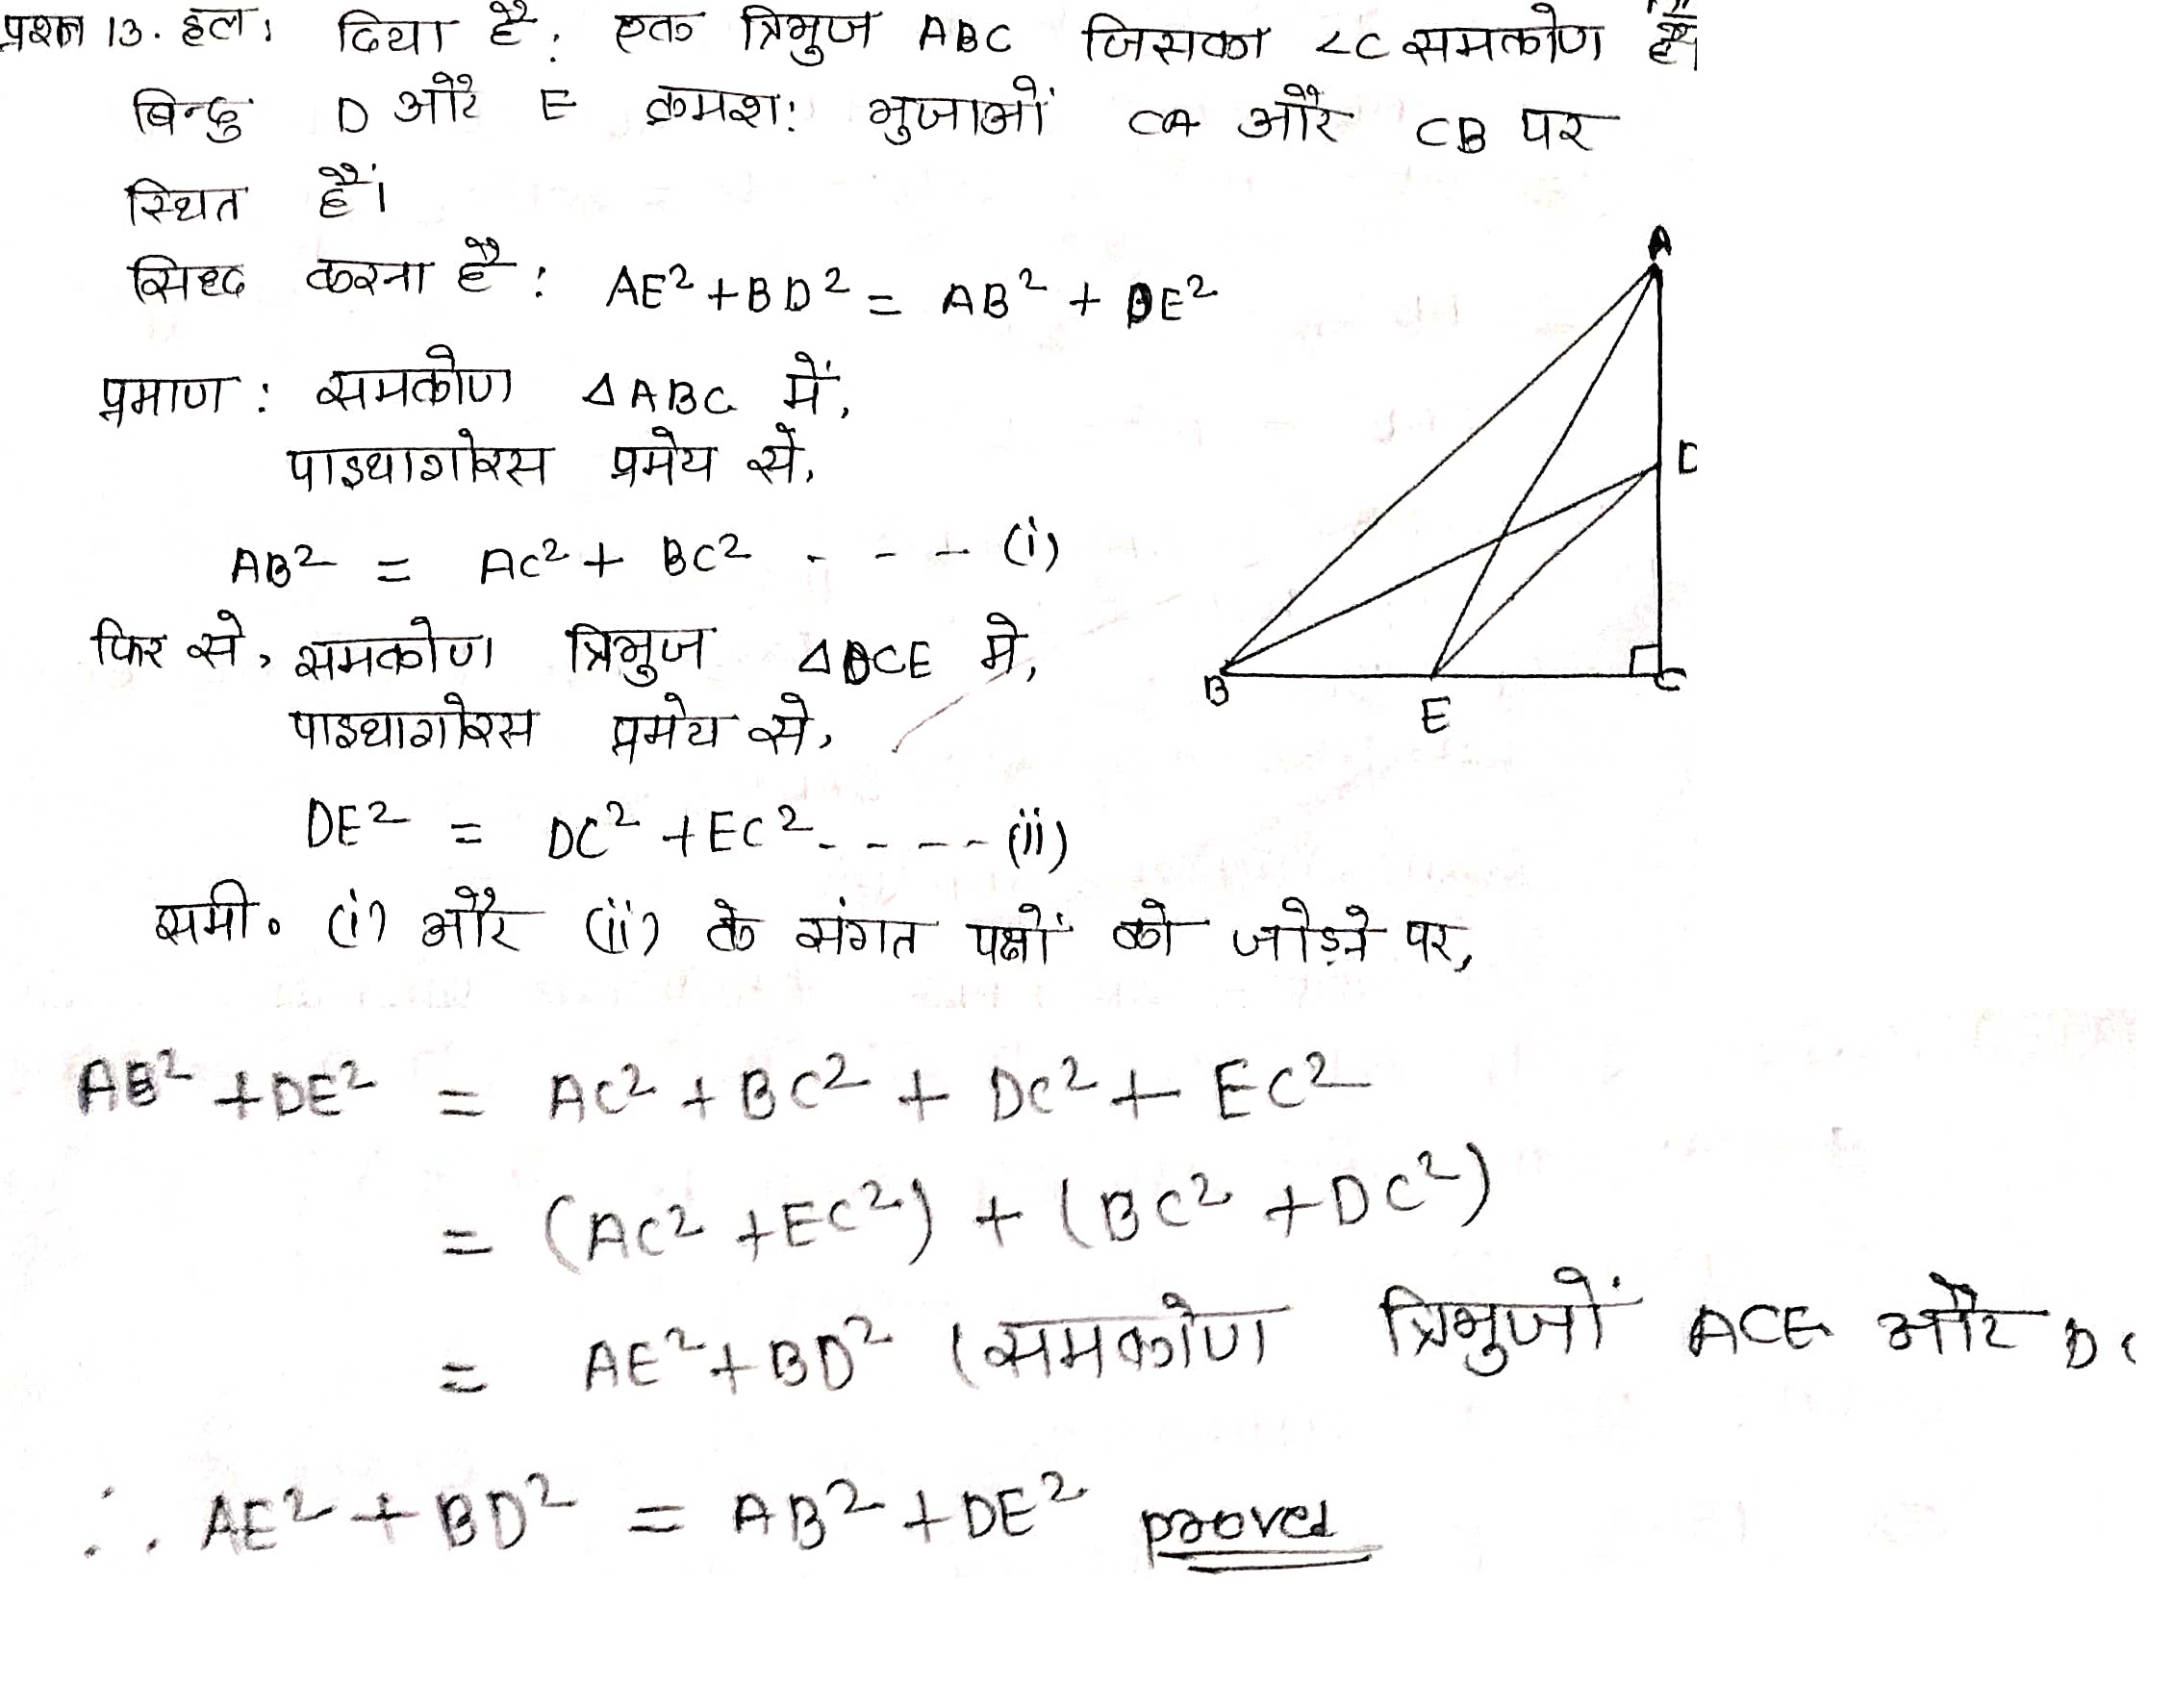 प्रश्न 13. हल: दिया है: एक त्रिभुज ABC जिसका ∠C समकोण है
बिन्दु D और E क्रमश: भुजाओं CA और CB पर
स्थित हैं।
सिद्ध करना है: AE² + BD² = AB² + DE²
प्रमाण: समकोण ΔABC में,
पाइथागोरस प्रमेय से,
AB² = AC² + BC² - - - (i)
फिर से, समकोण त्रिभुज ΔDCE मे,
पाइथागोरस प्रमेय से,
DE² = DC² + EC² - - - - (ii)
समी० (i) और (ii) के संगत पक्षों को जोड़ने पर,
AB² + DE² = AC² + BC² + DC² + EC²
= (AC² + EC²) + (BC² + DC²)
= AE² + BD² (समकोण त्रिभुजों ACE और
∴ AE² + BD² = AB² + DE² proved
A
D
B
E
C